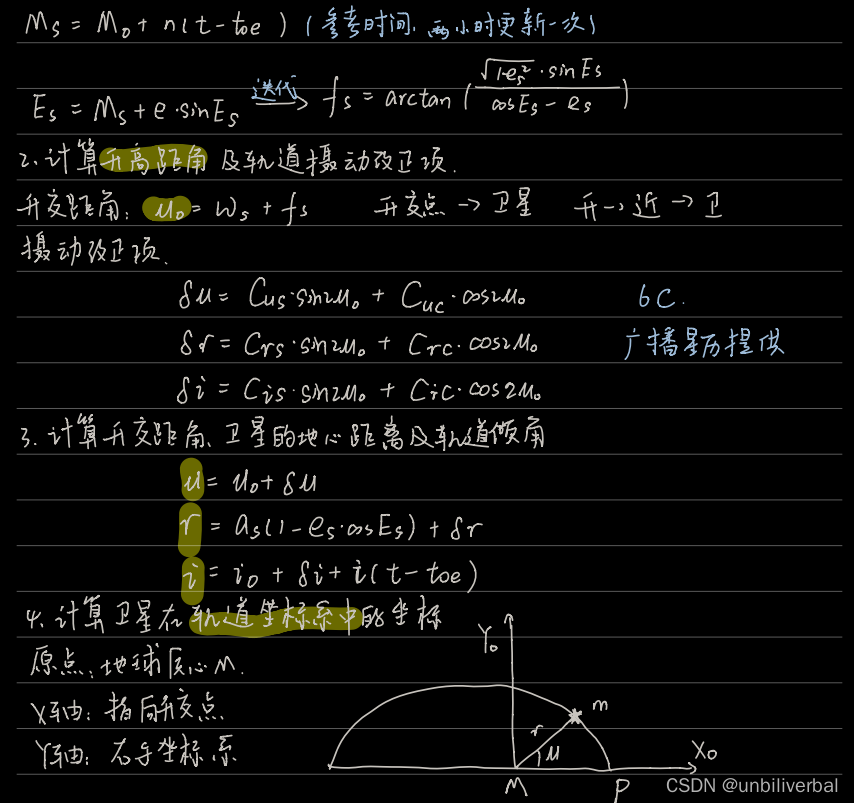 Ms = M0 + n(t - toe) (参考时间, 两小时更新一次)
Es = Ms + e·sinEs 迭代→ fs = arctan(√(1-es²)·sinEs / (cosEs - es))
2.计算升高距角及轨道摄动改正项.
升交距角: u0 = ws + fs 升交点 → 卫星 升→近→卫
摄动改正项.
δu = Cus·sin2u0 + Cuc·cos2u0 6C.
δr = Crs·sin2u0 + Crc·cos2u0 广播星历提供
δi = Cis·sin2u0 + Cic·cos2u0
3.计算升交距角、卫星的地心距离及轨道倾角
u = u0 + δu
r = as(1 - es·cosEs) + δr
i = i0 + δi + i(t - toe)
4.计算卫星在轨道坐标系中的坐标
原点:地球质心M.
X轴: 指向升交点
Y轴: 右手坐标系
Y0
m
r
u
X0
M
P
CSDN @unbiliverbal